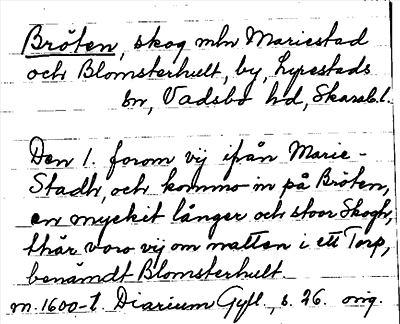 Bröten, skog mln Mariestad
och Blomsterhult, by, Lyrestads
sn, Vadsbo hd, Skarab.l.
Den 1. forom vij ifrån Marie-
Stadh, och kommo in på Bröten,
en myckit långer och stoor Skogh,
thär voro vij om natten i ett Torp,
benämdt Blomsterhult.
m. 1600-t Diarium Gyll., s. 26. orig.